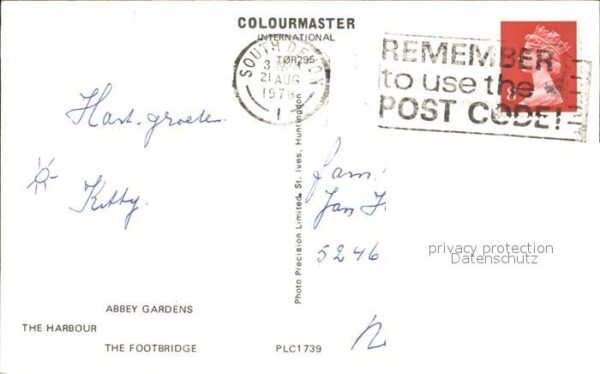 COLOURMASTER
INTERNATIONAL
TOR295
SOUTH DEVON
21 AUG
1
REMEMBER
to use the
POST CODE!
Hart. groeten
Kitty.
Photo Precision Limited, St. Ives, Huntingdon
fam.
Jan F.
5246
privacy protection
Datenschutz
ABBEY GARDENS
THE HARBOUR
THE FOOTBRIDGE
PLC1739